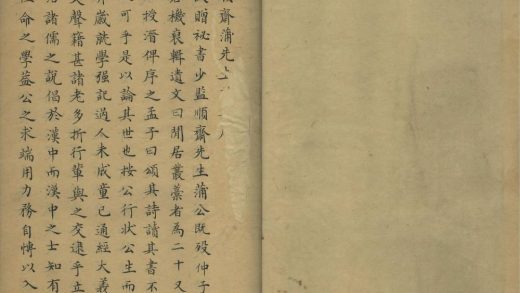 順齋蒲先生
贈祕書少監順齋先生蒲公既歿仲子
機裒輯遺文曰閒居叢藁者為二十又
授潛俾序之孟子曰頌其詩讀其書不
可乎是以論其世也按公行狀公生而
歲就學强記過人未成童已通經大義
聲籍甚諸老多折行輩與之交逮乎立
諸儒之說倡於漢中而漢中之士知有
命之學蓋公之求端用力務自慱以入